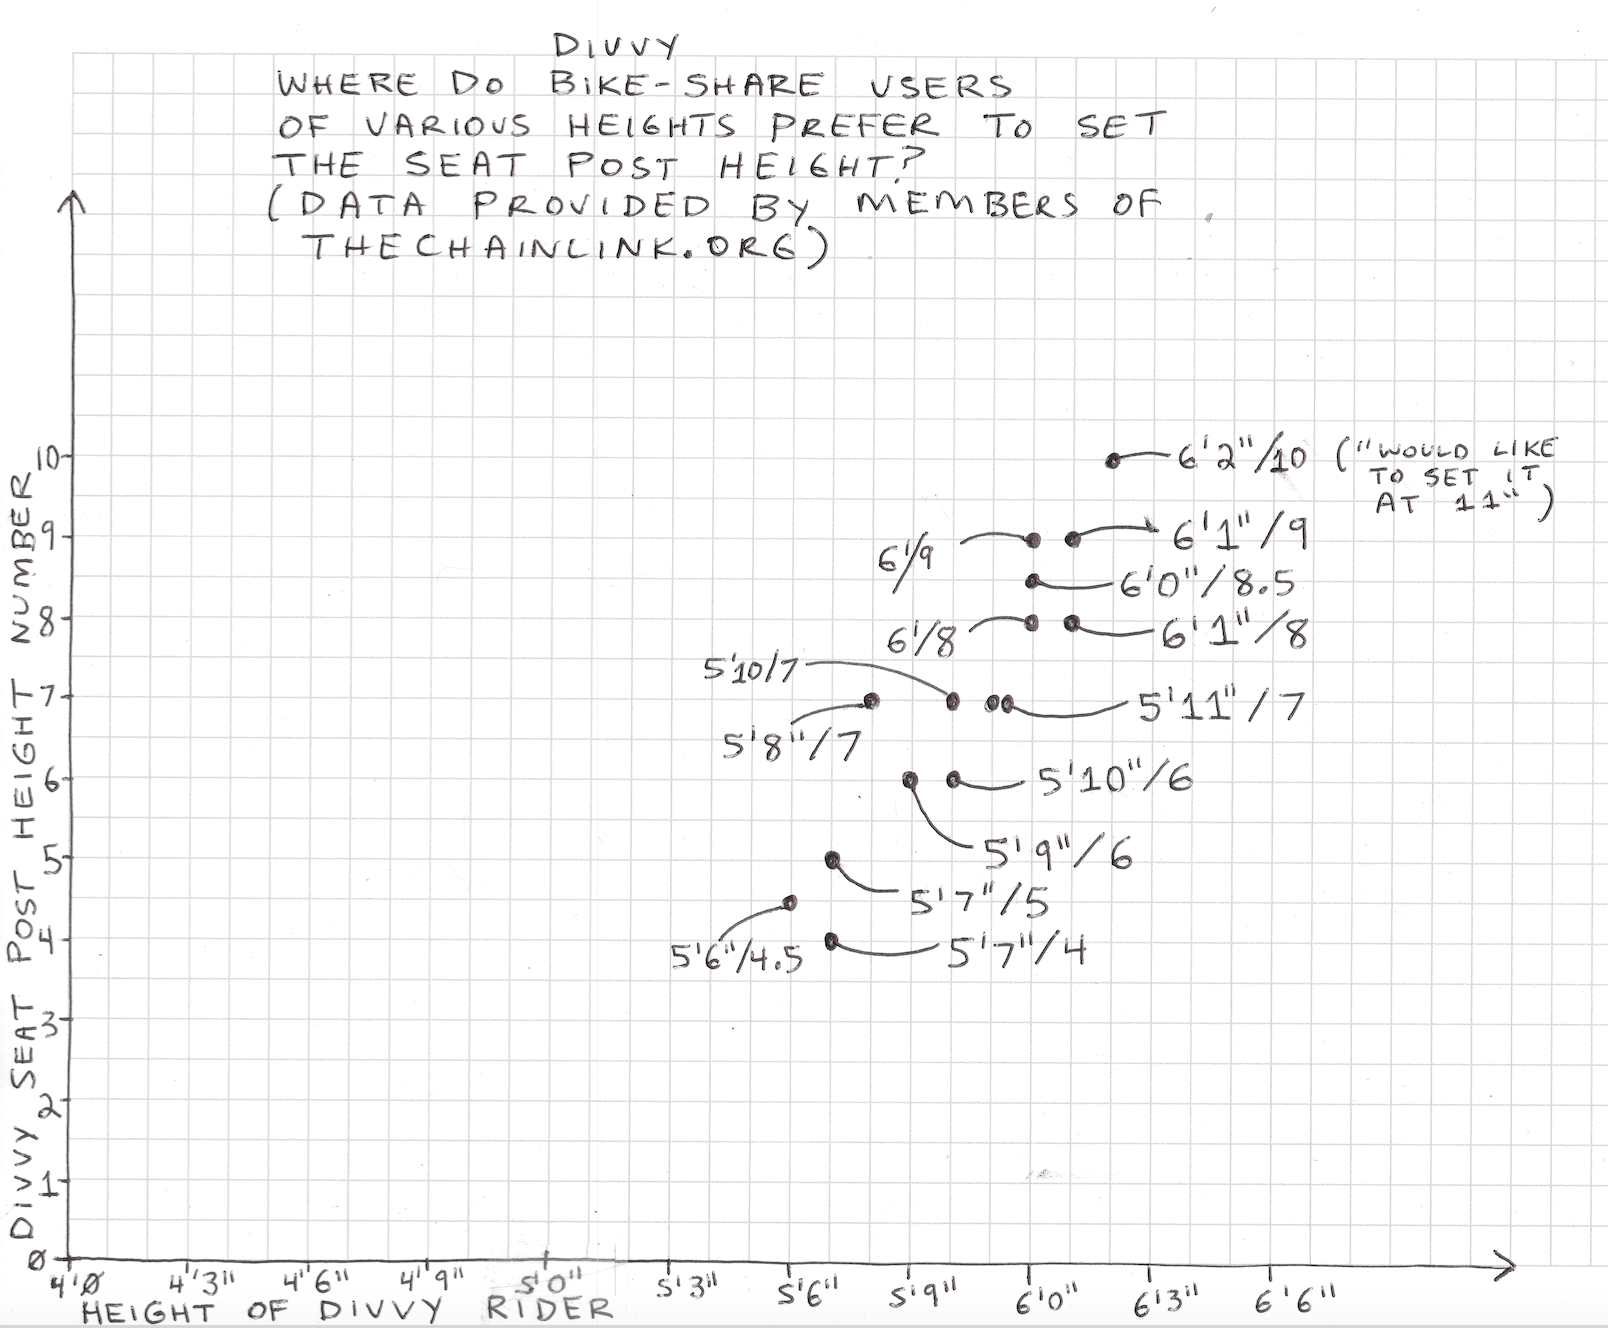 DIVVY
WHERE DO BIKE-SHARE USERS
OF VARIOUS HEIGHTS PREFER TO SET
THE SEAT POST HEIGHT?
(DATA PROVIDED BY MEMBERS OF
THECHAINLINK.ORG)
DIVVY SEAT POST HEIGHT NUMBER
10
9
8
7
6
5
4
3
2
1
0
6'2"/10 ("WOULD LIKE
TO SET IT
AT 11")
6'/9
6'1"/9
6'0"/8.5
6'/8
6'1"/8
5'10/7
5'8"/7
5'11"/7
5'10"/6
5'9"/6
5'7"/5
5'6"/4.5
5'7"/4
4'0 4'3" 4'6" 4'9" 5'0" 5'3" 5'6" 5'9" 6'0" 6'3" 6'6"
HEIGHT OF DIVVY RIDER